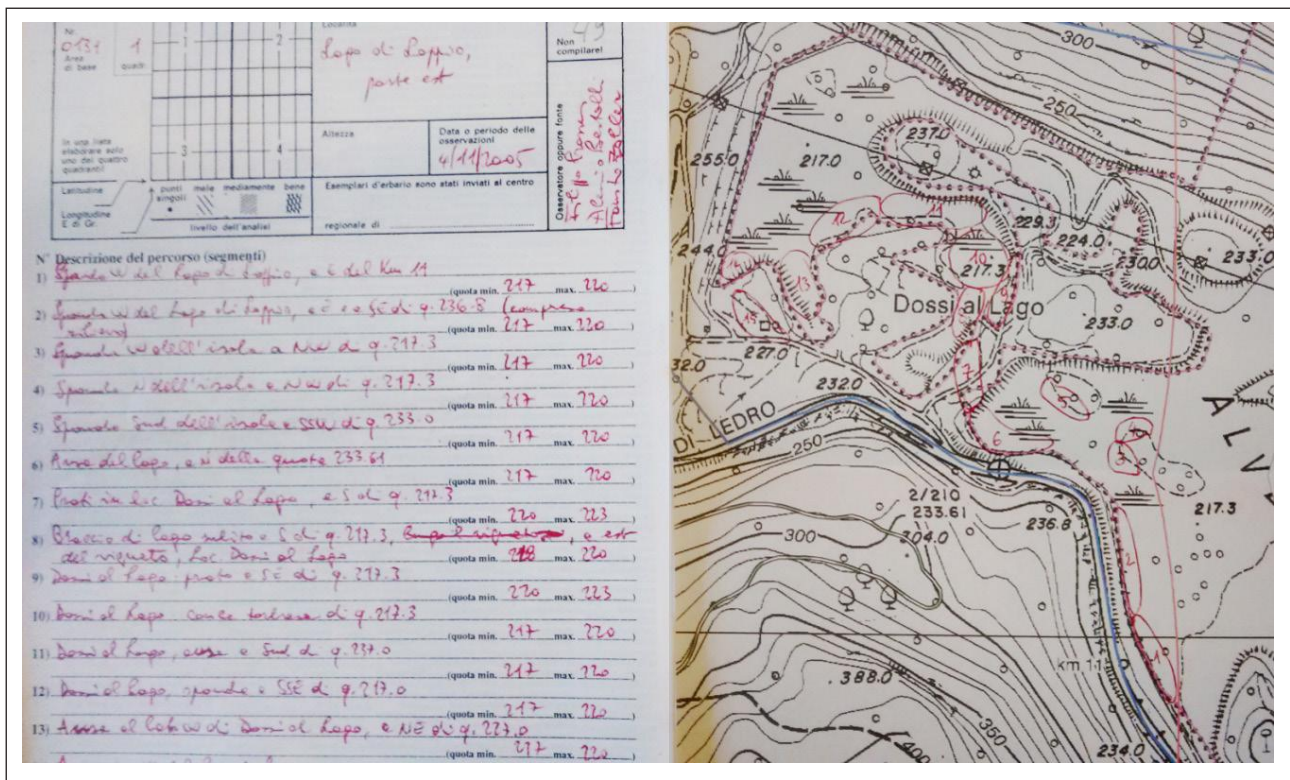 Nr.
0131 1
Area di base
quadr.
1 2
3 4
In una lista
elaborare solo
uno dei quattro
quadranti!
Latitudine
Longitudine
E di Gr.
punti singoli male mediamente bene
livello dell'analisi
Località
Lago di Loppio,
parte est
Altezza
Data o periodo delle
osservazioni
4/11/2005
Esemplari d'erbario sono stati inviati al centro
regionale di
Non
compilare!
49
Osservatore oppure fonte
Filippo Prosser
Alessio Bertolli
N° Descrizione del percorso (segmenti)
1) Sponda W del Lago di Loppio, a E del Km 11
(quota min. 217 max. 220 )
2) Sponda W del Lago di Loppio, a E e SE di q. 236.8 (compreso
(quota min. 217 max. 220 )
3) Sponda W dell'isola a NW di q. 217.3
(quota min. 217 max. 220 )
4) Sponda N dell'isola a NW di q. 217.3
(quota min. 217 max. 220 )
5) Sponda Sud dell'isola a SSW di q. 233.0
(quota min. 217 max. 220 )
6) Ansa del lago, a N della quota 233.61
(quota min. 217 max. 220 )
7) Prati in loc. Dossi al Lago, a S di q. 217.3
(quota min. 220 max. 223 )
8) Braccio di lago subito a S di q. 217.3, a est
del vigneto, Loc. Dossi al Lago
(quota min. 218 max. 220 )
9) Dossi al Lago prato a SE di q. 217.3
(quota min. 220 max. 223 )
10) Dossi al Lago conca torbosa di q. 217.3
(quota min. 217 max. 220 )
11) Dossi al Lago, ansa a Sud di q. 237.0
(quota min. 217 max. 220 )
12) Dossi al Lago, sponda a SSE di q. 217.0
(quota min. 217 max. 220 )
13) Ansa al lato W di Dossi al Lago, a NE di q. 227.0
(quota min. 217 max. 220 )
300
250
237.0
255.0
217.0
229.3
224.0
230.0
233.0
244.0
12
11
10
217.3
14
13
9
8
Dossi al Lago
15
233.0
227.0
232.0
232.0
7
5
DI LEDRO
A L V
250
6
4
3
2/210
233.61
304.0
217.3
236.8
300
2
km 11
1
388.0
350
400
234.0